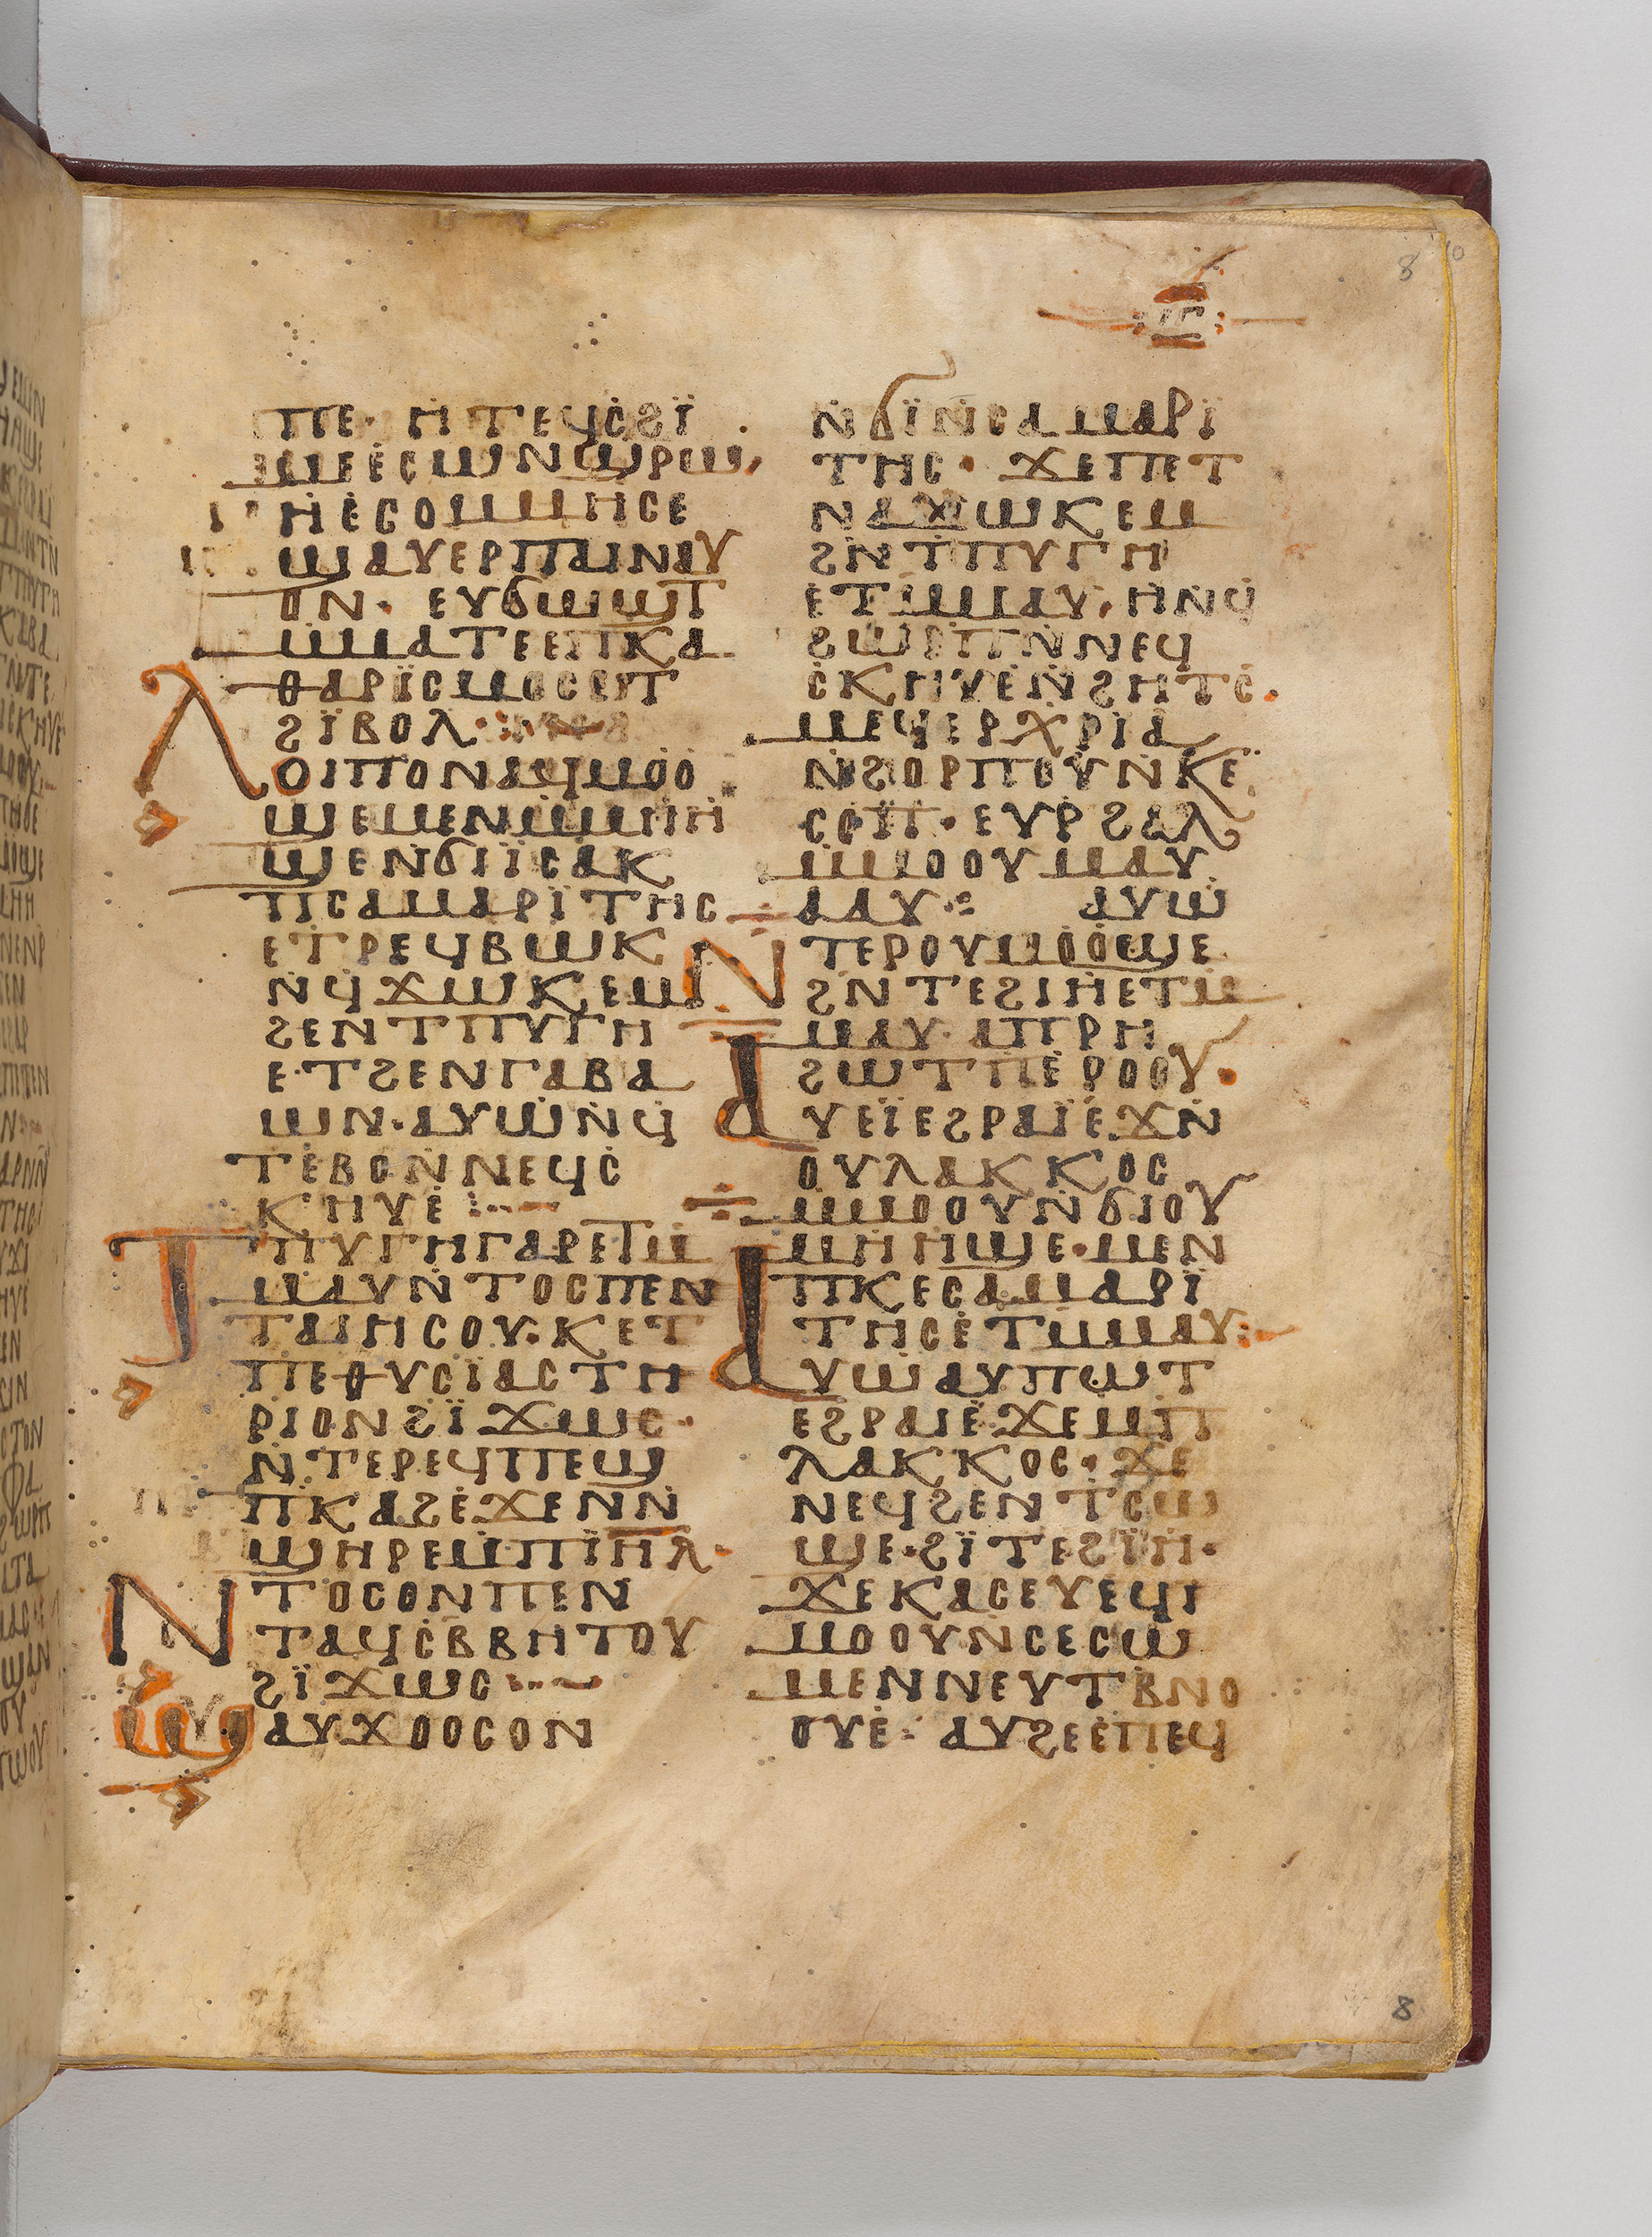 8
ⲓⲉ
ⲡⲉ· ⲏ ⲧⲉϥⲥϩⲓ̈
ⲙⲉⲉⲥⲱⲛϣⲣⲱ
ⲏⲉⲥⲟⲙⲙⲏⲥⲉ
ϣⲁⲩⲉⲣⲡⲁⲓⲛⲁⲩ
ⲟⲛ· ⲉⲩϭⲱϣⲧ
ϣⲙⲁⲧⲉⲉⲡⲕⲁ
ⲑⲁⲣⲓ̈ⲥⲙⲟⲥⲉⲓⲧ
ϩⲓ̈ⲃⲟⲗ·
ⲗⲟⲓⲡⲟⲛⲁϥⲙⲟⲟ
ϣⲉⲙⲉⲛⲙⲙⲏⲏ
ϣⲉⲛϭⲓⲓ̈ⲥⲁⲕ
ⲡⲥⲁⲙⲁⲣⲓ̈ⲧⲏⲥ
ⲉⲧⲣⲉϥⲃⲱⲕ
ⲛ̇ϥϫⲱⲕⲉⲙ
ϩⲉⲛⲧⲡⲩⲅⲏ
ⲉ·ⲧϩⲉⲛⲅⲁⲃⲁ
ⲱⲛ·ⲁⲩⲱⲛ̇ϥ
ⲧⲉⲃⲟⲛ̇ⲛⲉϥⲥ̇
ⲕⲏⲩⲉ
ⲧⲡⲩⲅⲏⲅⲁⲣⲉⲧⲙ
ⲙⲁⲩⲛ̇ⲧⲟⲥⲡⲉⲛ
ⲧⲁⲓⲏⲥⲟⲩ·ⲕⲉⲧ
ⲡⲉⲑⲩⲥⲓ̈ⲁⲥⲧⲏ
ⲣⲓⲟⲛϩⲓ̈ϫⲱⲥ·
ⲛ̇ⲧⲉⲣⲉϥⲡⲉϣ
ⲡⲕⲁϩⲉ̇ϫⲉⲛⲛ̇
ϣⲏⲣⲉⲙ̇ⲡⲓ̅ⲏ̅ⲗ̅·
ⲛⲧⲟⲥⲟⲛⲡⲉⲛ
ⲧⲁϥⲥ̇ⲃⲃⲏⲧⲟⲩ
ϩⲓ̈ϫⲱⲥ
ϣⲁⲩϫⲟⲟⲥⲟⲛ
ⲛ̇ϭⲓ̈ⲛ̇ⲥⲁⲙⲁⲣⲓ̈
ⲧⲏⲥ· ϫⲉⲡⲉⲧ
ⲛⲁϫⲱⲕⲉⲙ
ϩⲛ̇ⲧⲡⲩⲅⲏ
ⲉⲧⲙⲙⲁⲩ·ⲏⲛϥ̇
ϩⲱⲣⲡⲛ̇ⲛⲉϥ
ⲥ̇ⲕⲏⲩⲉⲛ̇ϩⲏⲧⲥ̇·
ⲙⲉϥⲉⲣⲭⲣⲓⲁ
ⲛ̇ϩⲟⲣⲡⲟⲩⲛ̇ⲕⲉ
ⲥⲟⲡ·ⲉⲩⲣϩⲁⲗ
ⲙⲙⲟⲟⲩⲙⲁⲩ
ⲁⲁⲩ· ⲁⲩⲱ
ⲛⲧⲉⲣⲟⲩⲙⲟⲟϣⲉ
ϩⲛⲧⲉϩⲓⲏⲉⲧⲙ
ⲙⲁⲩ·ⲁⲡⲣⲏ
ϩⲱⲧⲡⲉⲣⲟⲟⲩ·
ⲁⲩⲉⲓ̈ⲉϩⲣⲁⲓ̈ⲉϫⲛ̇
ⲟⲩⲗⲁⲕⲕⲟⲥ
ⲙⲙⲟⲟⲩⲛ̇ϭⲓⲟⲩ
ⲙⲏⲏϣⲉ·ⲙⲉⲛ
ⲡⲕⲉⲥⲁⲙⲁⲣⲓ̈
ⲧⲏⲥⲉⲧⲙⲙⲁⲩ
ⲁⲩⲱⲁⲩⲡⲱⲧ
ⲉϩⲣⲁⲓⲉ̇ϫⲉⲙⲡ
ⲗⲁⲕⲕⲟⲥ·ϫⲉ
ⲛⲉϥϩⲉⲛⲧⲥⲱ
ϣⲉ·ϩⲓ̈ⲧⲉϩⲓ̈ⲏ·
ϫⲉⲕⲁⲥⲉⲩⲉϥⲓ
ⲙⲟⲟⲩⲛ̇ⲥⲉⲥⲱ
ⲙⲉⲛⲛⲉⲩⲧⲃⲛⲟ
ⲟⲩⲉ· ⲁⲩϩⲉⲉⲡⲉϥ
8